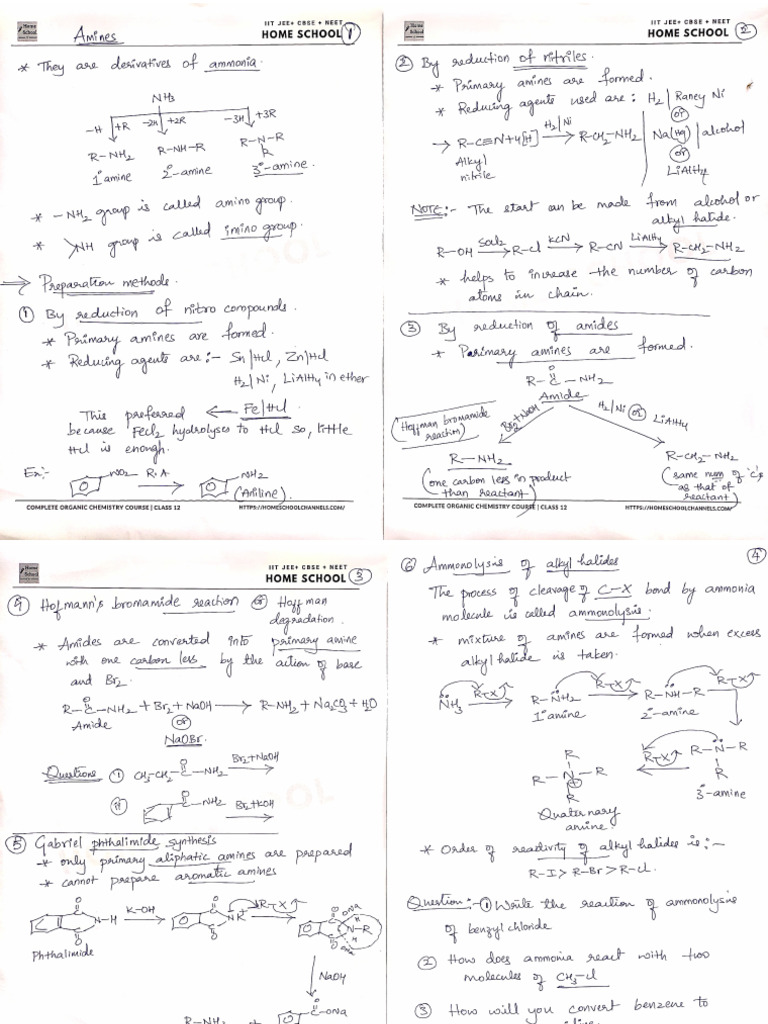 IIT JEE+ CBSE + NEET
HOME SCHOOL 1
Home School
Amines
* They are derivatives of ammonia.
NH3
-H +R -2H +2R -3H +3R
R-NH2 R-NH-R R-N-R
R
1° amine 2°-amine 3°-amine.
* -NH2 group is called amino group.
* >NH group is called imino group.
⇒ Preparation methods.
① By reduction of nitro compounds.
* Primary amines are formed.
* Reducing agents are :- Sn|HCl, Zn|HCl
H2|Ni, LiAlH4 in ether
This preferred ← Fe|HCl
because FeCl2 hydrolyses to HCl so, little
HCl is enough.
Ex:- NO2 R.A → NH2
(Aniline).
COMPLETE ORGANIC CHEMISTRY COURSE | CLASS 12 HTTPS://HOMESCHOOLCHANNELS.COM/
IIT JEE+ CBSE + NEET
HOME SCHOOL 2
② By reduction of nitriles.
* Primary amines are formed.
* Reducing agents used are : H2|Raney Ni
or
→ R-C≡N+4[H] H2|Ni → R-CH2-NH2 Na(Hg)|alcohol
Alkyl or
nitrile LiAlH4
NOTE:- The start can be made from alcohol or
alkyl halide.
R-OH SOCl2 → R-Cl KCN → R-CN LiAlH4 → R-CH2-NH2
* helps to increase the number of carbon
atoms in chain.
③ By reduction of amides
* Parimary amines are formed.
O
R-C-NH2
Amide
(Hoffman bromamide reaction) Br2+NaOH H2|Ni or LiAlH4
R-NH2 R-CH2-NH2
(one carbon less in product (same num of 'C's
than reactant) as that of
reactant)
COMPLETE ORGANIC CHEMISTRY COURSE | CLASS 12 HTTPS://HOMESCHOOLCHANNELS.COM/
IIT JEE+ CBSE + NEET
HOME SCHOOL 3
④ Hofmann's bromamide reaction or Hoffman
degradation.
* Amides are converted into primary amine
with one carbon less by the action of base
and Br2.
O
R-C-NH2 + Br2 + NaOH → R-NH2 + Na2CO3 + H2O
Amide or
NaOBr.
Questions ① CH3-CH2-C-NH2 Br2+NaOH →
O
ⅱ C-NH2 Br2+KOH →
O
⑤ Gabriel phthalimide synthesis
* only primary aliphatic amines are prepared
* cannot prepare aromatic amines
N-H K-OH → NK R-X →  N-R
Phthalimide
NaOH
R-NH2 + C-ONa
④
⑥ Ammonolysis of alkyl halides
The process of cleavage of C-X bond by ammonia
molecule is called ammonolysis.
* mixture of amines are formed when excess
alkyl halide is taken.
NH3 R-X → R-NH2 R-X → R-NH-R R-X
1° amine 2°-amine
R
R-N-R ← R-X R-N-R
R R
Quaternary 3°-amine
amine.
* Order of reactivity of alkyl halides is :-
R-I > R-Br > R-Cl.
Question:- ① Write the reaction of ammonolysis
of benzyl chloride
② How does ammonia react with two
molecules of CH3-Cl
③ How will you convert benzene to